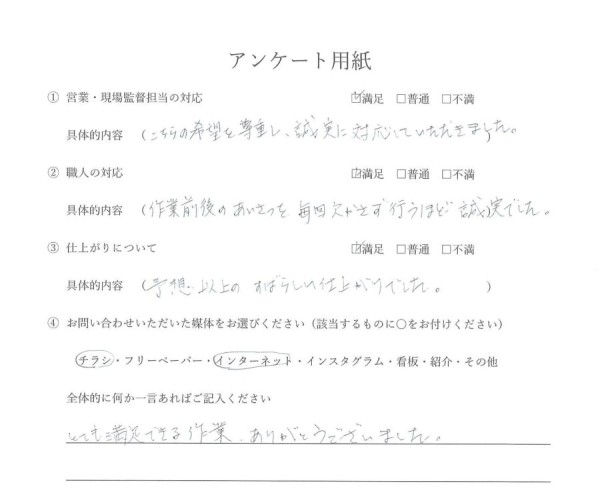 アンケート用紙
① 営業・現場監督担当の対応 ☑満足 □普通 □不満
具体的内容 (こちらの希望を尊重し、誠実に対応していただきました。)
② 職人の対応 ☑満足 □普通 □不満
具体的内容 (作業前後のあいさつを毎回欠かさず行うほど誠実でした。
③ 仕上がりについて ☑満足 □普通 □不満
具体的内容 (予想以上のすばらしい仕上がりでした。 )
④ お問い合わせいただいた媒体をお選びください(該当するものに○をお付けください)
チラシ・フリーペーパー・インターネット・インスタグラム・看板・紹介・その他
全体的に何か一言あればご記入ください
とても満足できる作業、ありがとうございました。